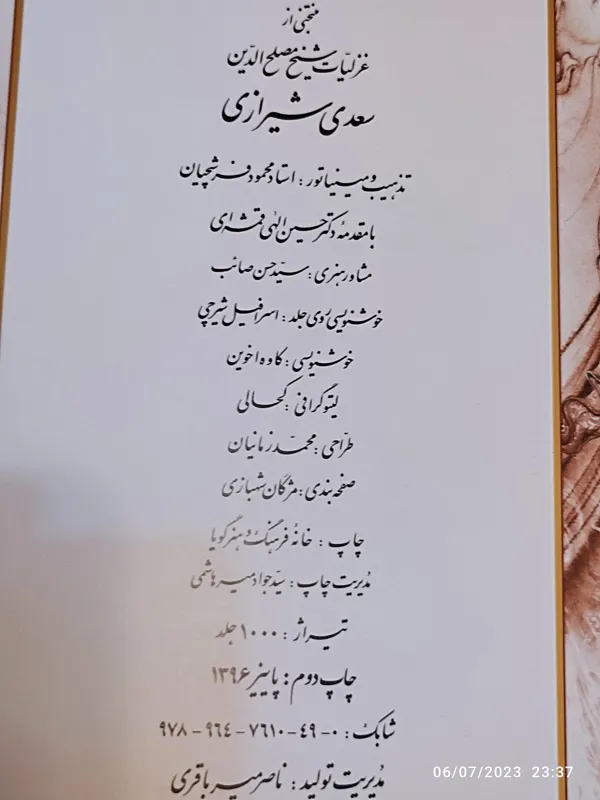 منتخبی از
غزلیات شیخ مصلح الدّین
سعدی شیرازی
تذهیب و مینیاتور : استاد محمود فرشچیان
با مقدمهٔ دکتر حسین الهی قمشه‌ای
مشاور هنری : سیّد حسن صائب
خوشنویسی روی جلد : اسرافیل شیرچی
خوشنویسی : کاوه اخوین
لیتوگرافی : کحالی
طرّاحی : محمّد زمانیان
صفحه بندی : مژگان شهبازی
چاپ : خانهٔ فرهنگ و هنر گویا
مدیریت چاپ : سیّد جواد میرهاشمی
تیراژ : ۱۰۰۰ جلد
چاپ دوم : پاییز ۱۳۹۶
شابک : ۰-۴۹-۷۶۱۰-۹۶۴-۹۷۸
مدیریت تولید : ناصر میرباقری
06/07/2023 23:37